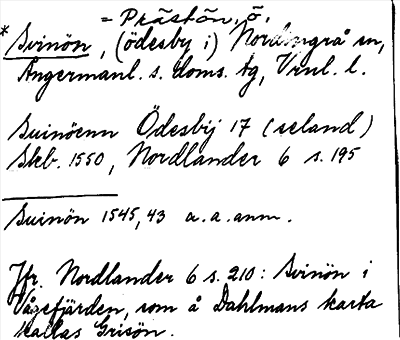 = Prästön, ö.
* Svinön, (ödesby i) Nordingrå sn,
Ångermanl. s. doms. tg, Vrnl. l.
Suinöenn Ödesbÿ 17 (seland)
Skb. 1550, Nordlander 6 s. 195
Suinön 1545, 43 a. a. anm.
Jfr. Nordlander 6 s. 210: Svinön i
Vågefjärden, som å Dahlmans karta
kallas Grisön.